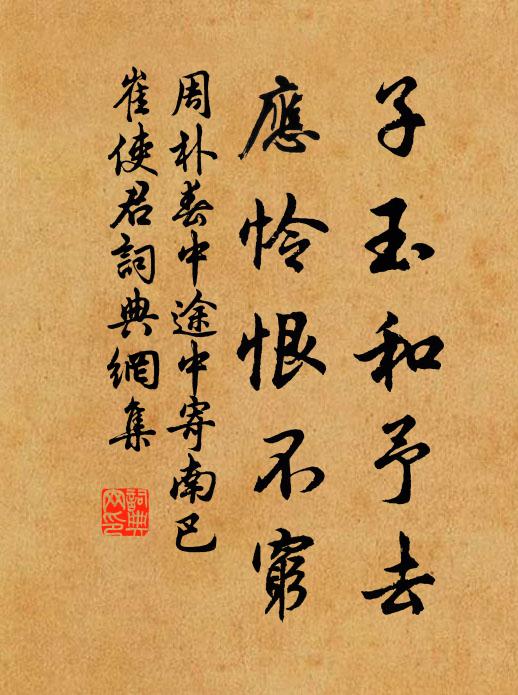 子玉和予去
應怜恨不窮
周朴春中途中寄南巴
崔使君詞典網集
詞典網印